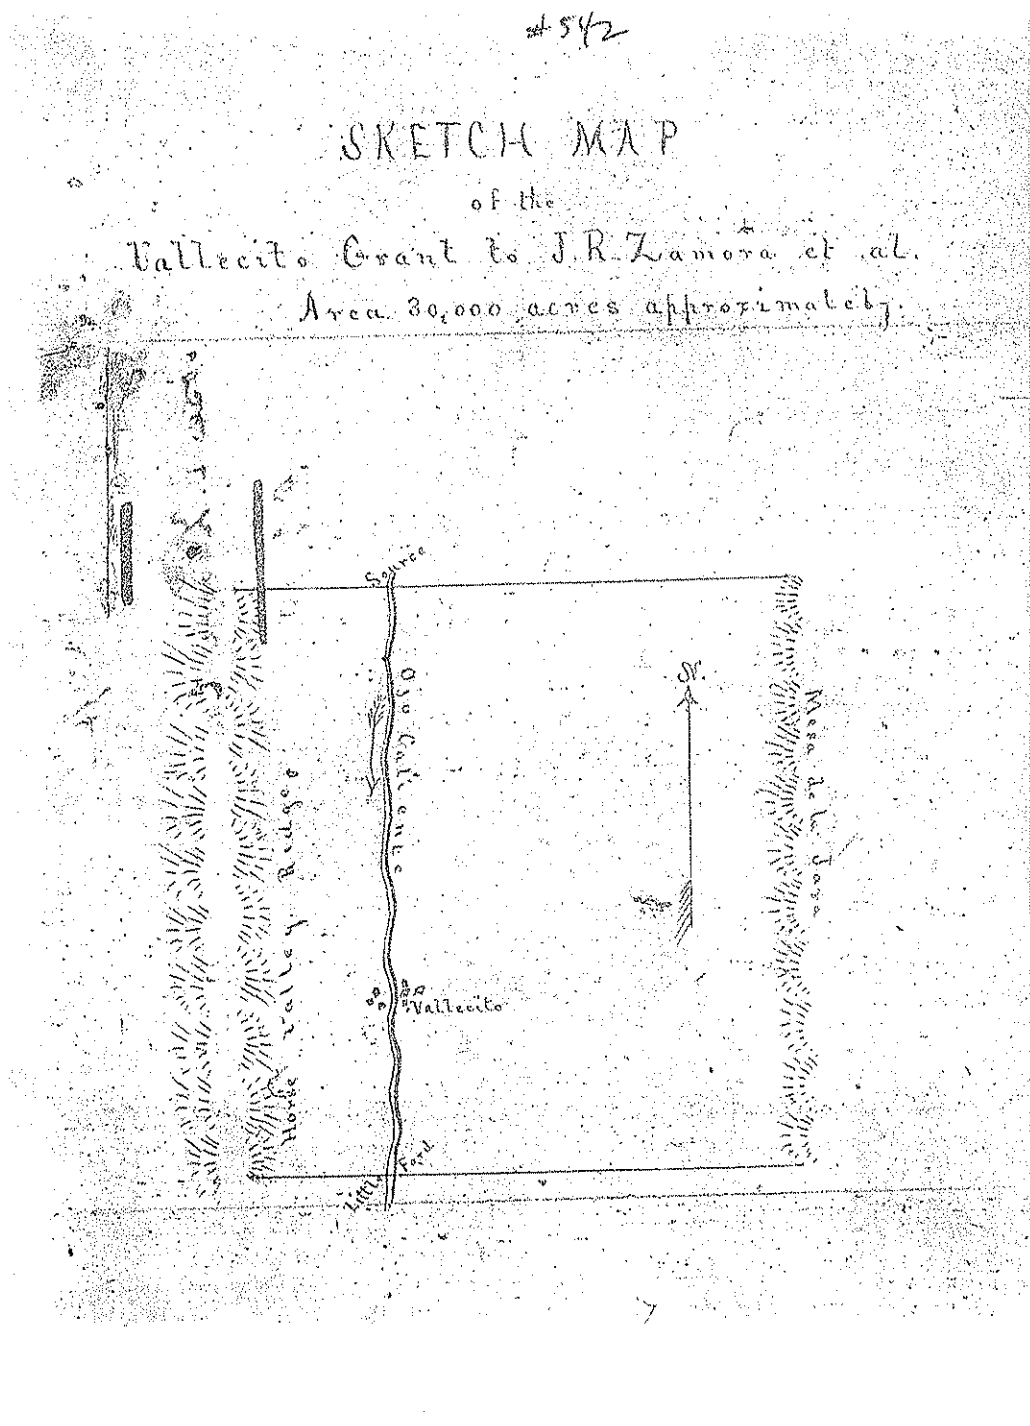 #542
SKETCH MAP
of the
Vallecito Grant to J.R. Zamora et al.
Area 30,000 acres approximately.
Source
Ojo Caliente
N.
Mesa de la Jara
Horse Valley Ridges
Vallecito
Little Ford